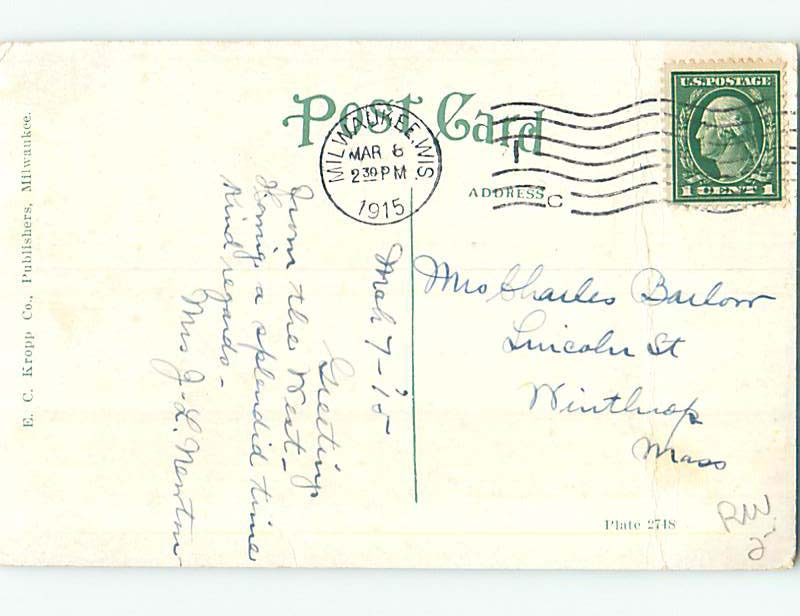 Post Card
U.S. POSTAGE
1 CENT 1
MILWAUKEE, WIS
MAR 8
2 30 PM
1915
C
ADDRESS
E. C. Kropp Co., Publishers, Milwaukee.
Mch 7-'15
Greetings
from the West-
Having a splendid time
Kind regards-
Mrs J. L. Newton
Mrs Charles Barlow
Lincoln St
Winthrop
Mass
Plate 2748
RW
2-